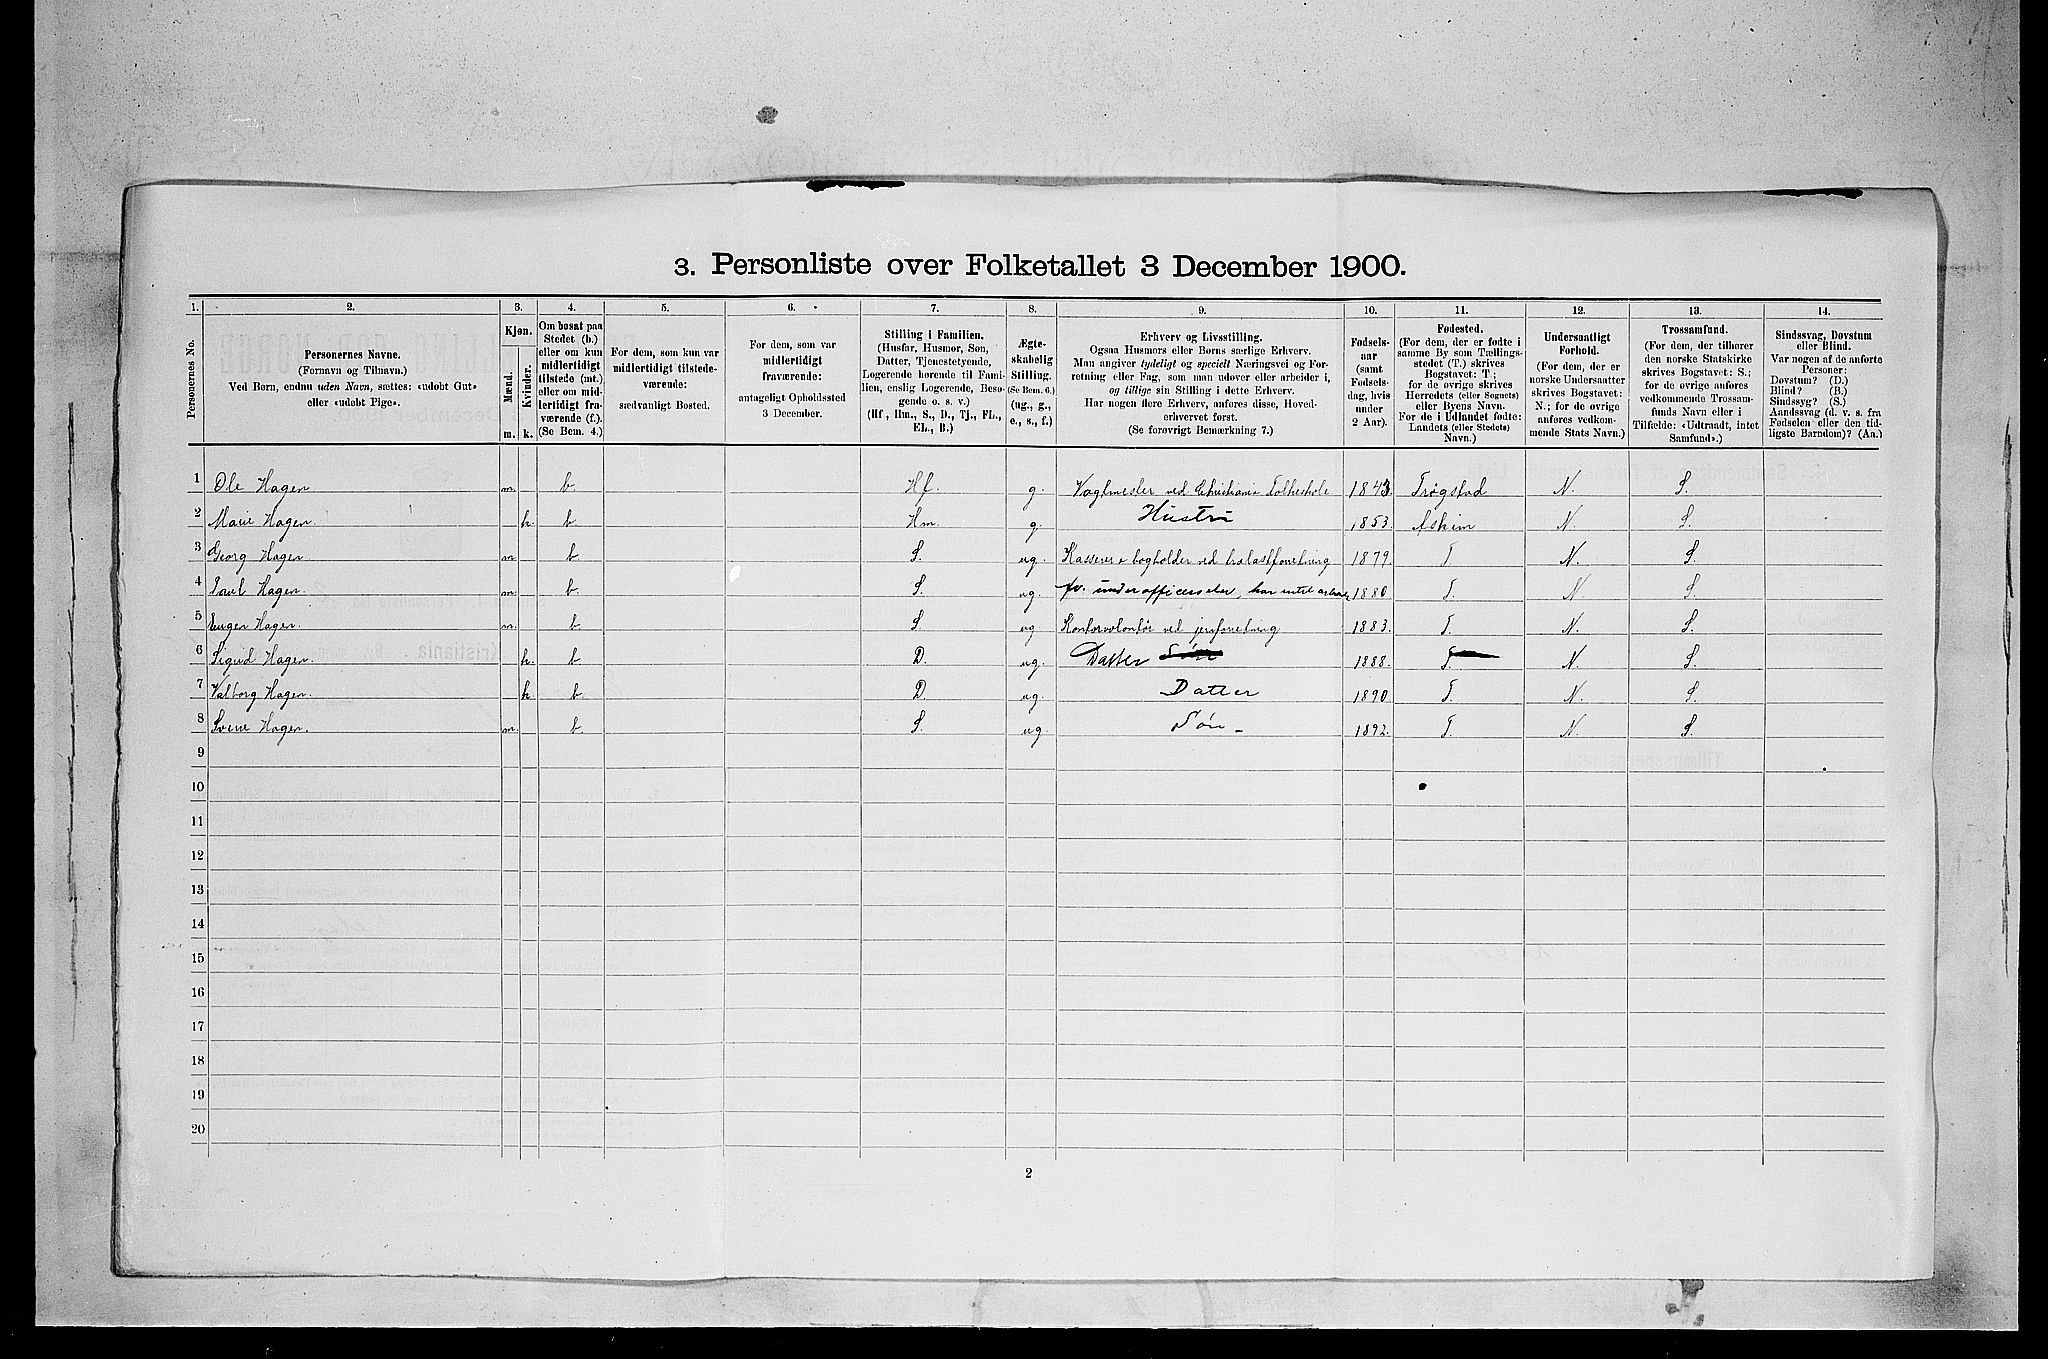 3. Personliste over Folketallet 3 December 1900.
1. 2. 3. 4. 5. 6. 7. 8. 9. 10. 11. 12. 13. 14.
Personernes No.
Personernes Navne.
(Fornavn og Tilnavn.)
Ved Børn, endnu uden Navn, sættes: «udøbt Gut»
eller «udøbt Pige».
Kjøn.
Mænd.
Kvinder.
m. k.
Om bosat paa
Stedet (b.)
eller om kun
midlertidigt
tilstede (mt.)
eller om mid-
lertidigt fra-
værende (f.).
(Se Bem. 4.)
For dem, som kun var
midlertidigt tilstede-
værende:
sædvanligt Bosted.
For dem, som var
midlertidigt
fraværende:
antageligt Opholdssted
3 December.
Stilling i Familien.
(Husfar, Husmor, Søn,
Datter, Tjenestetyende,
Logerende hørende til Fami-
lien, enslig Logerende, Besø-
gende o. s. v.)
(Hf, Hm., S., D., Tj., FL.,
EL., B.)
Ægte-
skabelig
Stilling.
(Se Bem. 6.)
(ug., g.,
e., s., f.)
Erhverv og Livsstilling.
Ogsaa Husmors eller Børns særlige Erhverv.
Man angiver tydeligt og specielt Næringsvei og For-
retning eller Fag, som man udøver eller arbeider i,
og tillige sin Stilling i dette Erhverv.
Har nogen flere Erhverv, anføres disse, Hoved-
erhvervet først.
(Se forøvrigt Bemærkning 7.)
Fødsels-
aar
(samt
Fødsels-
dag, hvis
under
2 Aar).
Fødested.
(For dem, der er fødte i
samme By som Tællings-
stedet (T.) skrives
Bogstavet: T.;
for de øvrige skrives
Herredets (eller Sognets)
eller Byens Navn.
For de i Udlandet fødte:
Landets (eller Stedets)
Navn.)
Undersaatligt
Forhold.
(For dem, der er
norske Undersaatter
skrives Bogstavet:
N.; for de øvrige
anføres vedkom-
mende Stats Navn.)
Trossamfund.
(For dem, der tilhører
den norske Statskirke
skrives Bogstavet: S.;
for de øvrige anføres
vedkommende Trossam-
funds Navn eller i
Tilfælde: «Udtraadt, intet
Samfund».)
Sindssvag, Døvstum
eller Blind.
Var nogen af de anførte
Personer:
Døvstum? (D.)
Blind? (B.)
Sindssyg? (S.)
Aandssvag (d. v. s. fra
Fødselen eller den tid-
ligste Barndom)? (Aa.)
1 Ole Hagen m. b. Hf. g. Vagtmester ved Christiania Folkeskole 1843. Trøgstad N. S.
2 Marie Hagen. k. b. Hm. g. Hustru 1853. Askim N. S.
3 Georg Hagen m b. S. ug. Kasserer & bogholder ved trælastforretning 1879. T N. S.
4 Paul Hagen. m. b. S. ug. 1880 T. N. S.
5 Eugen Hagen. m. b. S. ug Kontorvolontør ved jernforretning 1883. T. N. S.
6 Sigrid Hagen. k. b D. ug. Datter Søn 1888. T N. S.
7 Valborg Hagen. k. b D. ug. Datter 1890 T. N. S.
8 Sverre Hagen. m. b. S. ug. Søn 1892. T. N. S.
9
10
11
12
13
14
15
16
17
18
19
20
2